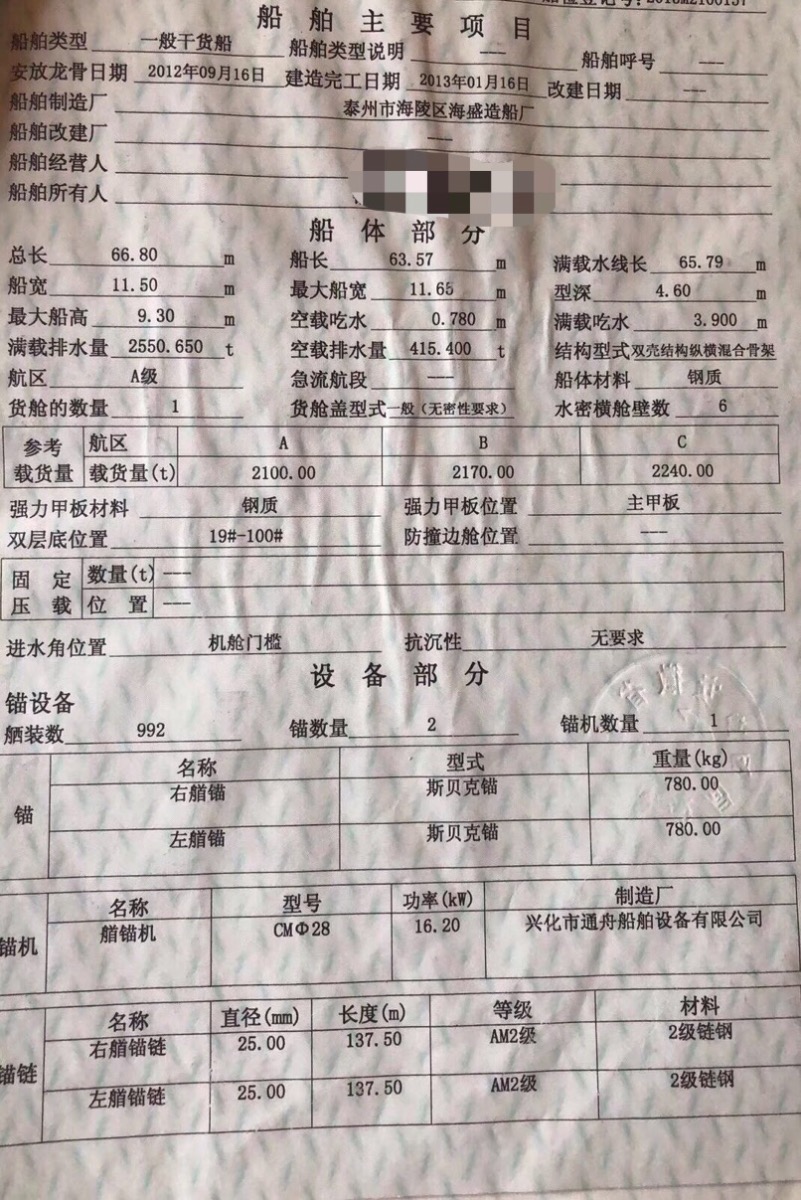 船检登记号:
船舶主要项目
船舶类型 一般干货船 船舶类型说明 --- 船舶呼号 ---
安放龙骨日期 2012年09月16日 建造完工日期 2013年01月16日 改建日期 ---
船舶制造厂 泰州市海陵区海盛造船厂
船舶改建厂 ---
船舶经营人
船舶所有人
船体部分
总长 66.80 m 船长 63.57 m 满载水线长 65.79 m
船宽 11.50 m 最大船宽 11.65 m 型深 4.60 m
最大船高 9.30 m 空载吃水 0.780 m 满载吃水 3.900 m
满载排水量 2550.650 t 空载排水量 415.400 t 结构型式 双壳结构纵横混合骨架
航区 A级 急流航段 --- 船体材料 钢质
货舱的数量 1 货舱盖型式 一般(无密性要求) 水密横舱壁数 6
参考 航区 A B C
载货量 载货量(t) 2100.00 2170.00 2240.00
强力甲板材料 钢质 强力甲板位置 主甲板
双层底位置 19#-100# 防撞边舱位置 ---
固定 数量(t) ---
压载 位置 ---
进水角位置 机舱门槛 抗沉性 无要求
设备部分
锚设备
舾装数 992 锚数量 2 锚机数量 1
名称 型式 重量(kg)
锚 右艏锚 斯贝克锚 780.00
左艏锚 斯贝克锚 780.00
名称 型号 功率(kW) 制造厂
锚机 艏锚机 CMΦ28 16.20 兴化市通舟船舶设备有限公司
名称 直径(mm) 长度(m) 等级 材料
锚链 右艏锚链 25.00 137.50 AM2级 2级链钢
左艏锚链 25.00 137.50 AM2级 2级链钢